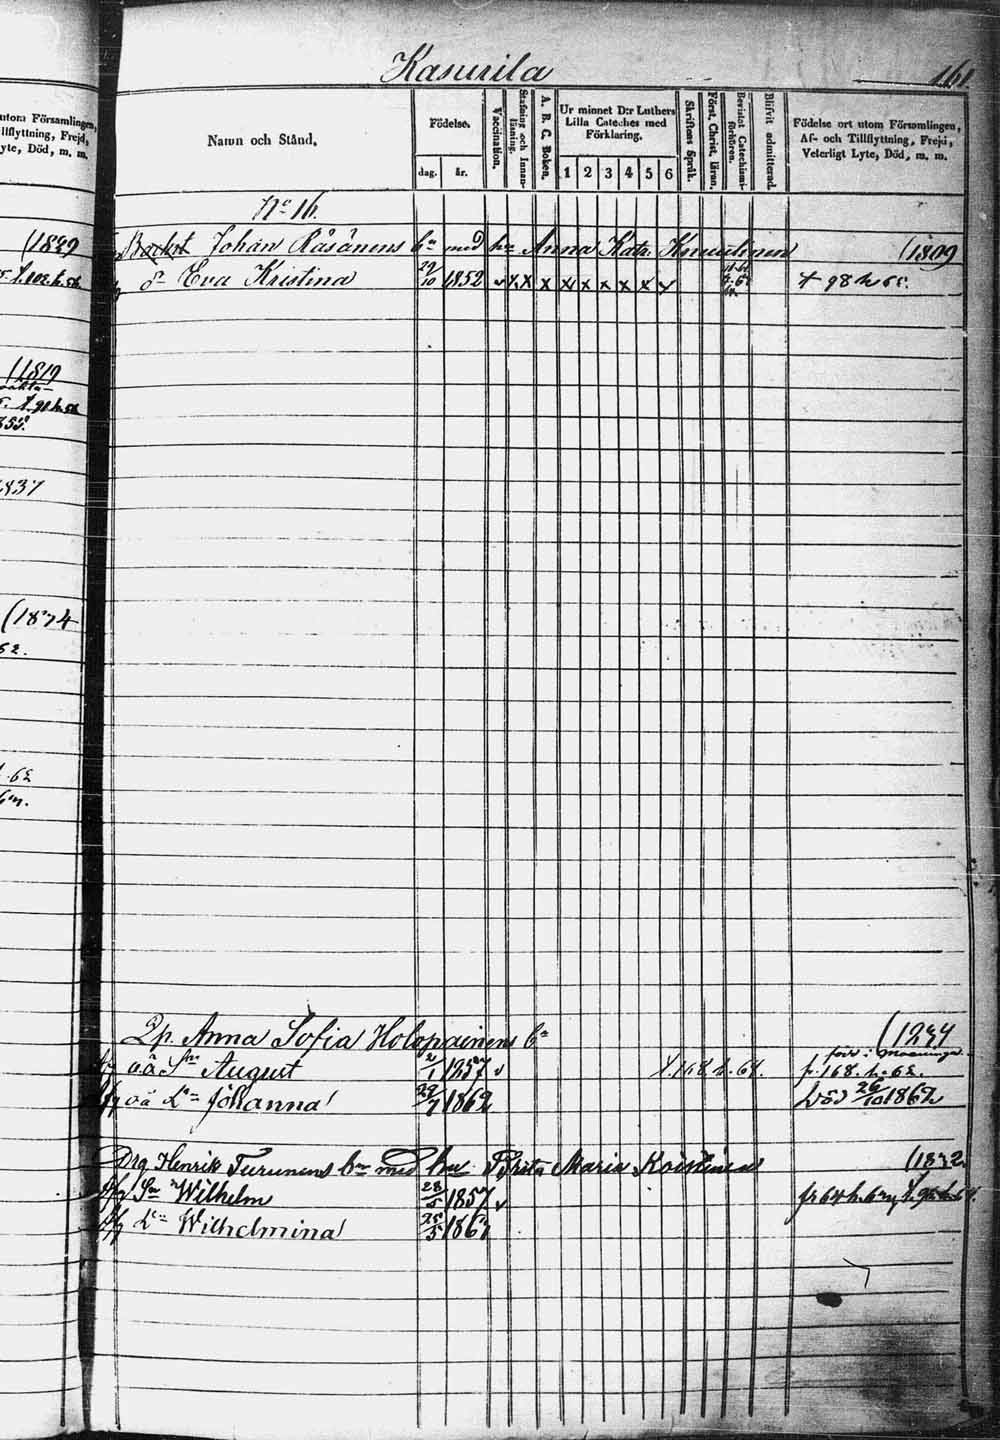 Kasurila 161.
utom Församlingen,
Tillflyttning, Frejd,
Lyte, Död, m. m.
Namn och Stånd.
Födelse.
dag. år.
Vaccination.
Stafning och Innan-
läsning.
A. B. C. Boken.
Ur minnet D:r Luthers
Lilla Cateches med
Förklaring.
1 2 3 4 5 6
Skriftens Språk.
Först. Christ. läran.
Bevistat Catechismi-
förhören.
Blifvit admitterad.
Födelse ort utom Församlingen,
Af- och Tillflyttning, Frejd,
Veterligt Lyte, Död, m. m.
No 16.
(1839
Johan Räsänens bn med hu Anna Katr. (1809
dr Eva Kristina 29/10 1852 v x x x x x x x x v + 98 h 65.
(1819
1837
(1874
62.
.62
Qp. Anna Sofia Holopainens bn (1234
oä Sn August 2/1 1857 v f. 168. h. 64. fr. 168. h. 62.
oä Dr Johanna 29/7 1862 Död 26/10 1862
Drg Henrik Turunens bn med hu Brita Maria Koistinen (1832
Sn Wilhelm 28/5 1857 v
Dr Wilhelmina 25/5 1861